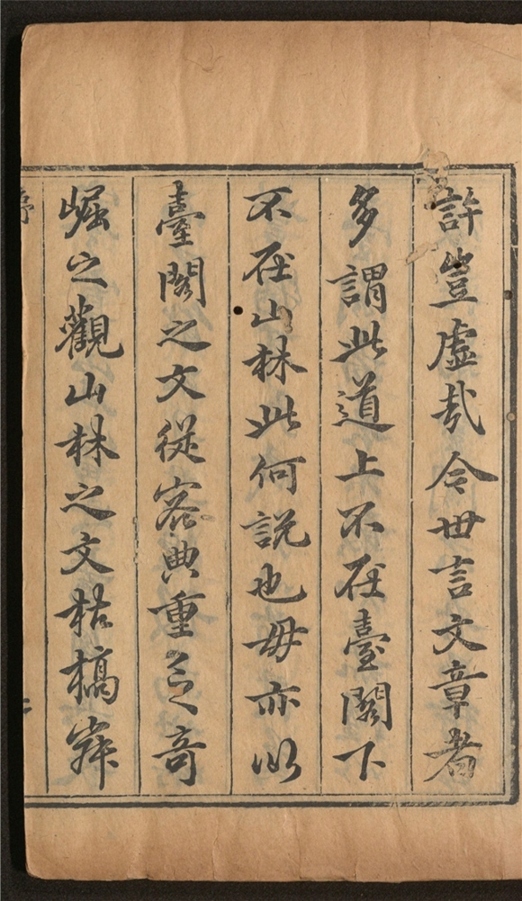 許豈虛哉今世言文章者
多謂此道上不在臺閣下
不在山林此何說也毋亦以
臺閣之文從容典重乏奇
崛之觀山林之文枯槁寂
序